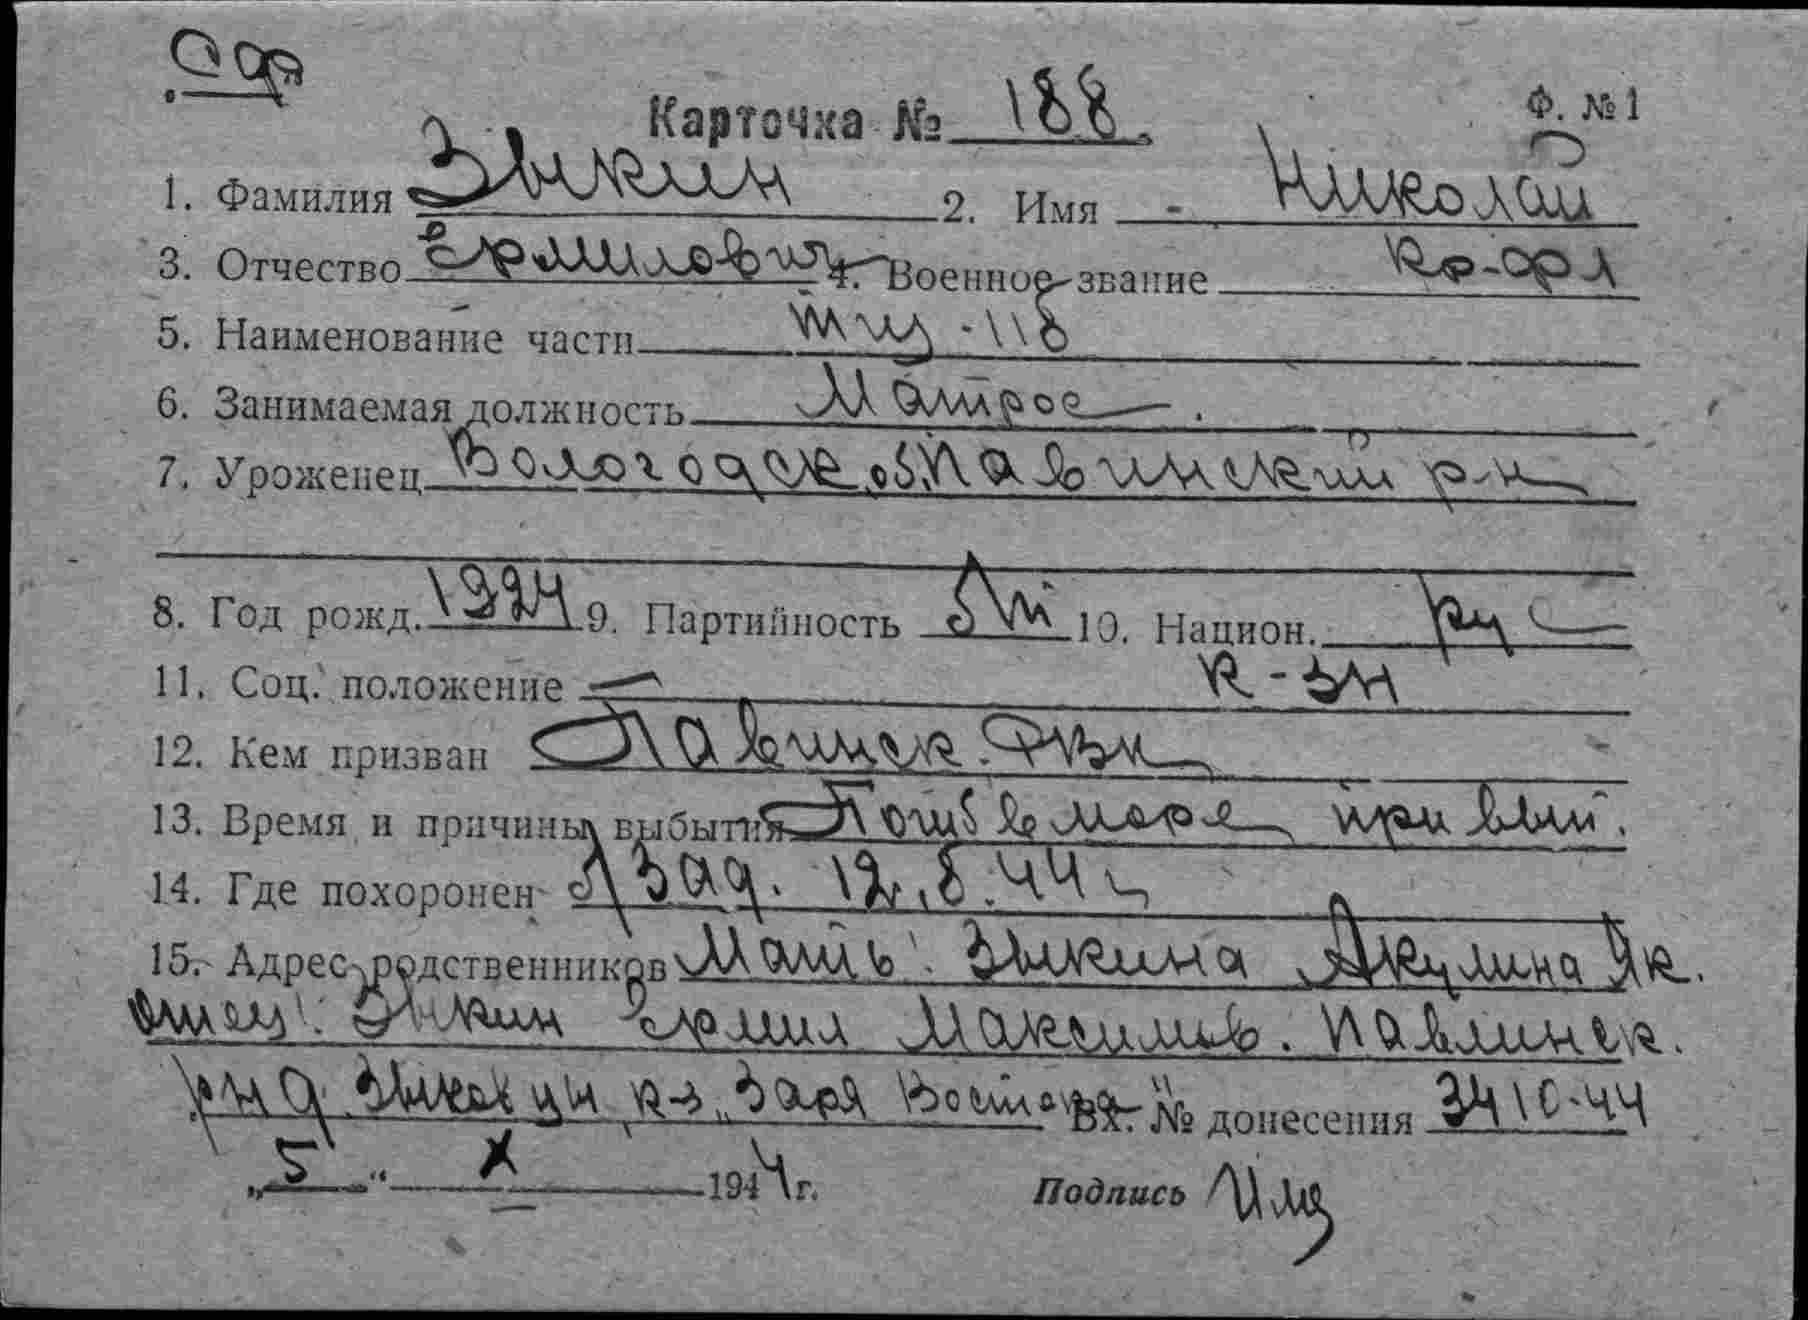 Карточка № 188 Ф. № 1
1. Фамилия Зыкин 2. Имя - Николай
3. Отчество Ермилович 4. Военное звание Кр-фл
5. Наименование части тщ-118
6. Занимаемая должность Матрос
7. Уроженец Вологодск. об. Павинский р-н
8. Год рожд. 1924 9. Партийность б/п 10. Национ. рус
11. Соц. положение к-зн
12. Кем призван Павинск. РВК
13. Время и причины выбытия Погиб в море при вып.
14. Где похоронен б/зад. 12.8.44 г
15. Адрес родственников Мать: Зыкина Акулина Як.
отец: Зыкин Ермил Максимов. Павлинск.
рн д. к-з „Заря Востока" Вх. № донесения 3410-44
„5" X 1944 г. Подпись